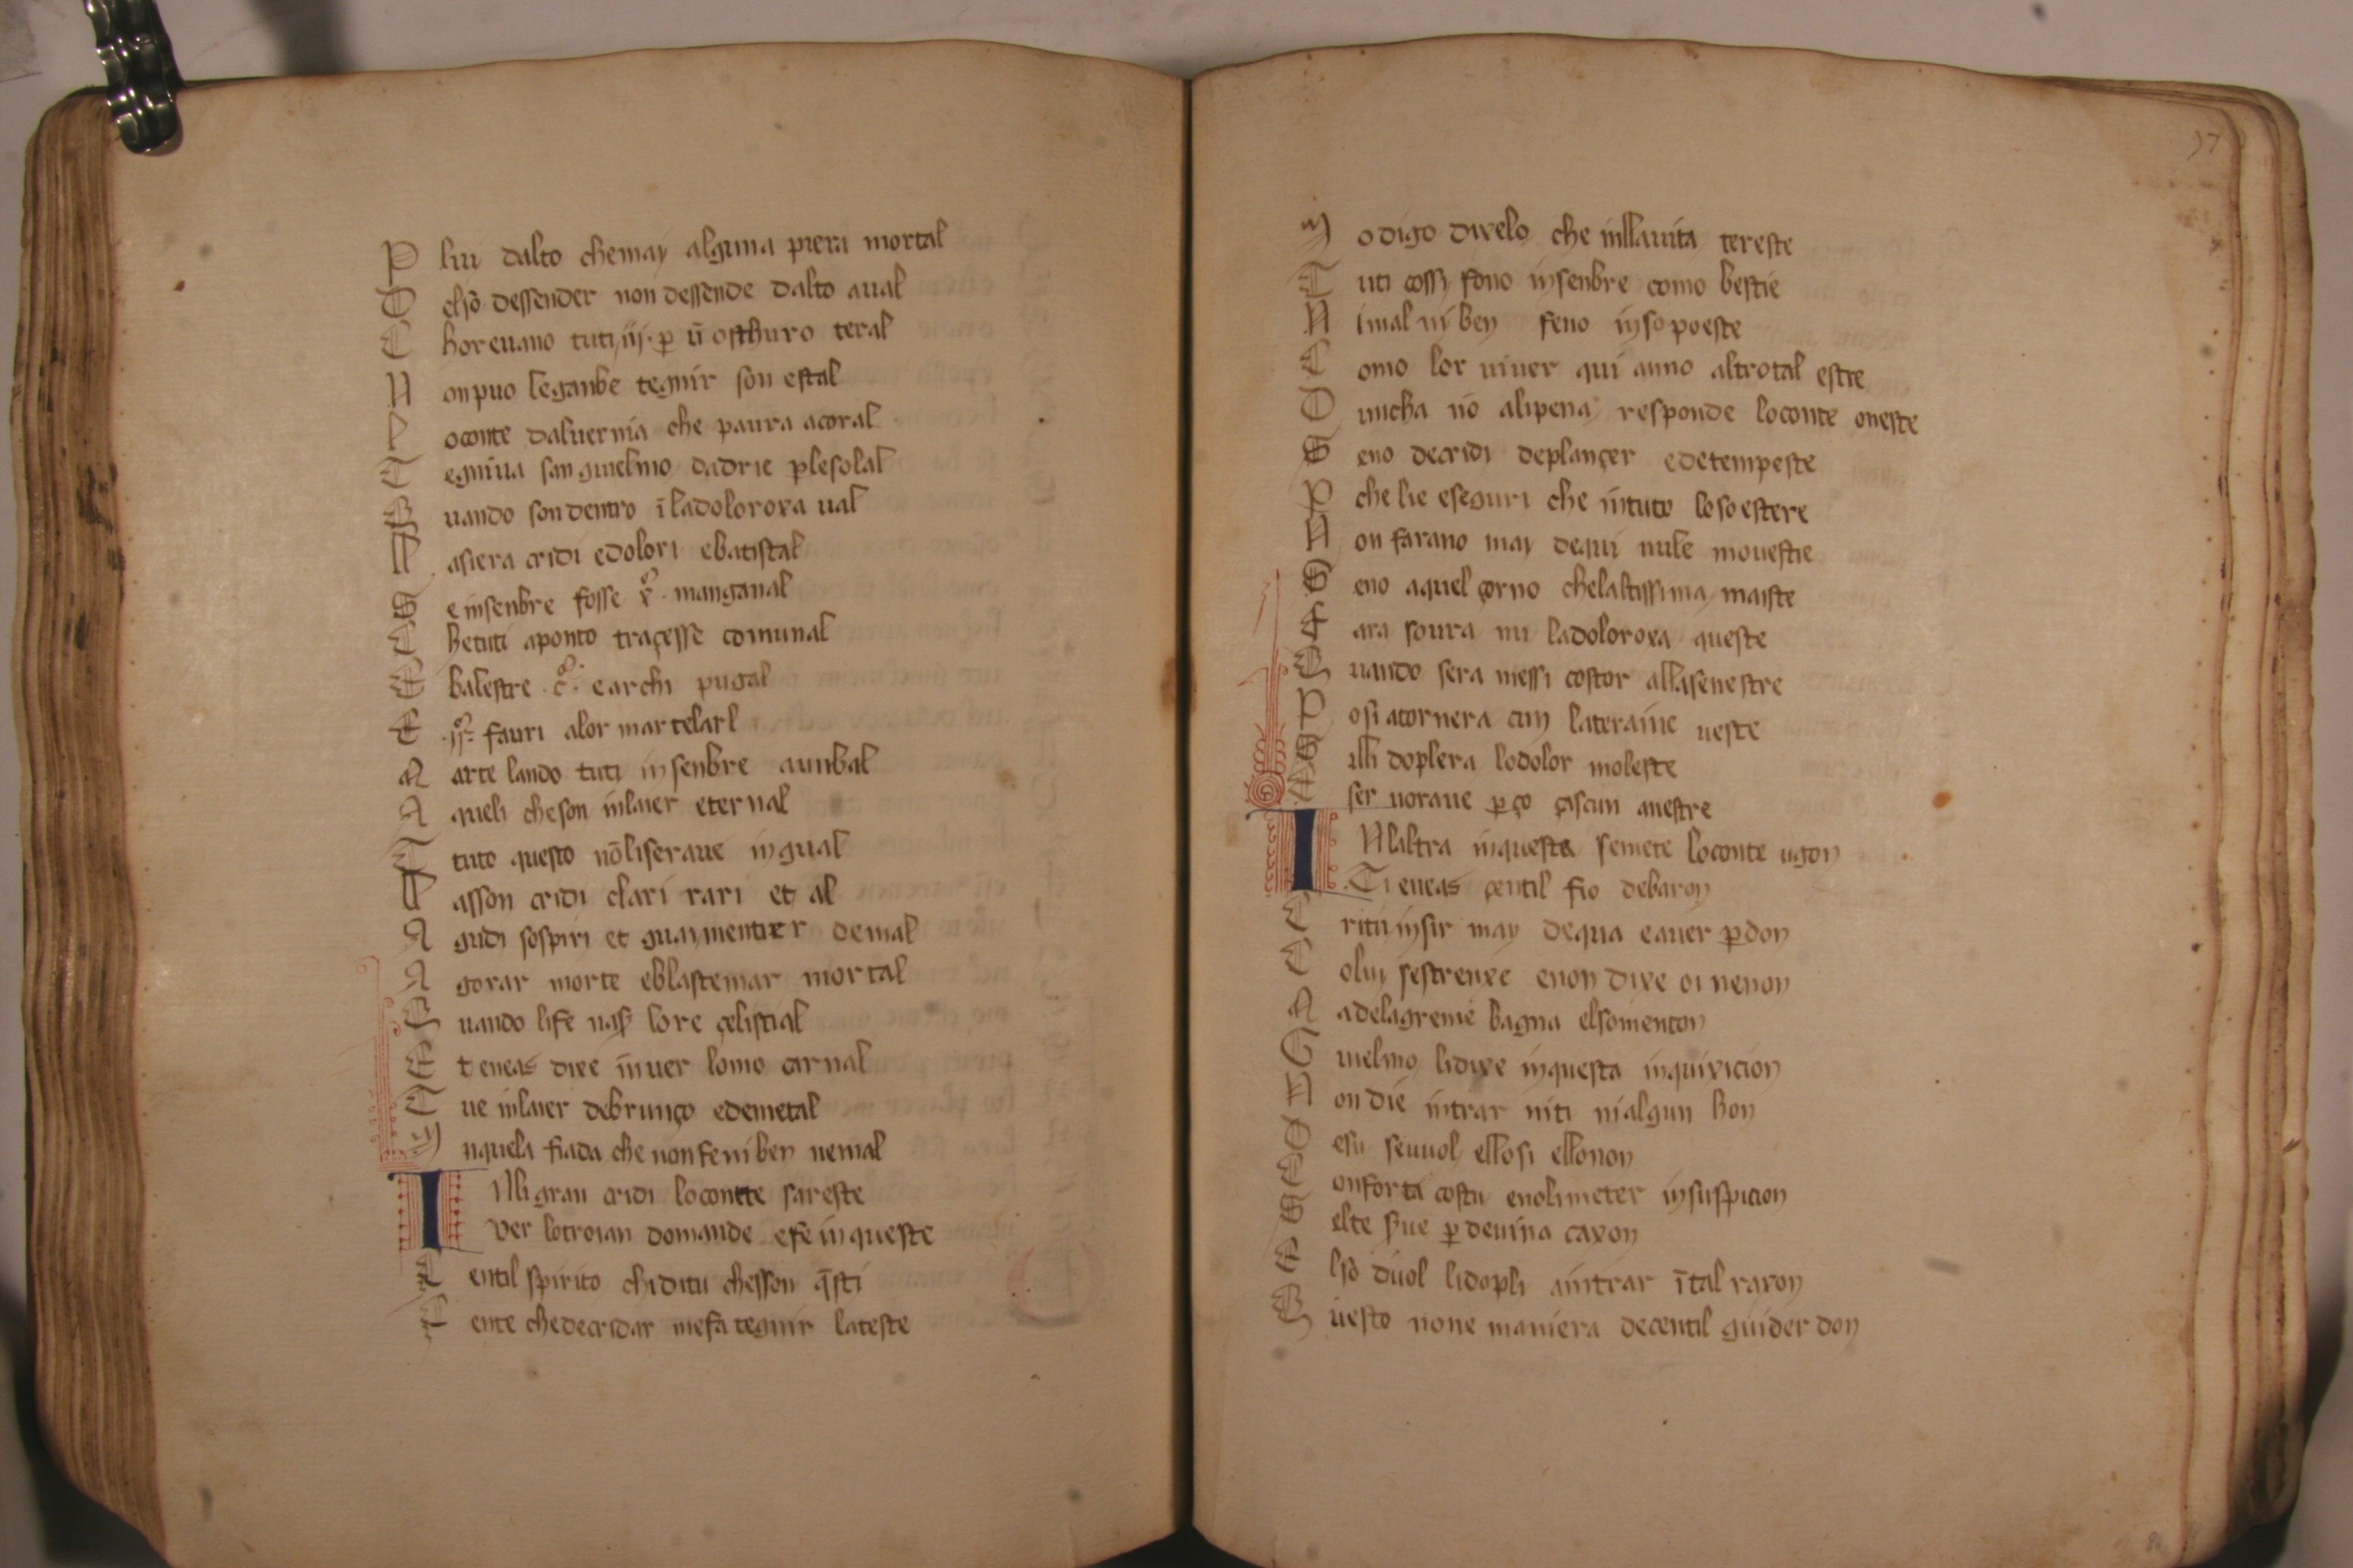 P lui dalto che may alguna piera mortal
D elsō dessender non dessende dalto aual
C hor euano tuti iij. p ū osthuro teral
N on puo leganbe tegnir son estal
L o conte daluernia che paura acoral
T egniua san guielmo dadrie p le solal
Q uando son dentro ī la doloroxa ual
L a siera cridi e dolori e batistal
S e insenbre fosse manganal
C he tuti aponto traçesse comunal
E balestre earchi pugal
E fauri alor martelarl
M arte lando tuti insenbre aunbal
A queli che son inlaier eternal
T tuto questo nō li seraue ingual
L a sson cridi clari rari et al
A gudi sospiri et guaymentier de mal
A gorar morte e blastemar mortal
Q uando life lore çelistial
E t eneas dixe inuer lomo carnal
T ue inlaier debrunço edemetal
I nquela fiada che non feni ben nemal
I Nli gran cridi lo contte sareste
Ver lo troian domande e fe inqueste
Ç entil spirito chi ditu che sson q̄sti
Ç ente che de cridar me fa tegnir lateste
97
I o digo dixelo che in llauita tereste
T uti cossi fono insenbre como bestie
N i mal ni ben feno inso poeste
C omo lor viuer qui anno altrotal estre
D uncha nō alipena responde lo conte oneste
S eno de cridi de plançer e de tempeste
P che lie e seguri che in tuto lo so estere
N on farano may de qui nule mouestie
S eno aquel çorno che laltissima maiste
F ara soura nu la doloroxa queste
Q uando sera messi costor alla senestre
P osi atornera cun la teraine ueste
S illi doplera lo dolor moleste
E ser uoraue p ço çascun anestre
I Nlaltra inquesta semete lo conte ugon
Ti eneas çentil fio de baron
C ritu insir may de qua e auer pdon
C olui se strenxe e non dixe oi nenon
M a de lagreme bagna el so menton
G uielmo li dixe in questa inquixicion
N on die intrar niti ni algun hon
D esu se uuol ello si ello non
C onforta costu e no li meter in suspicion
S elte p deuina caxon
E lsō duol li dopli aintrar ī tal raxon
Q uesto none maniera de çentil guiderdon